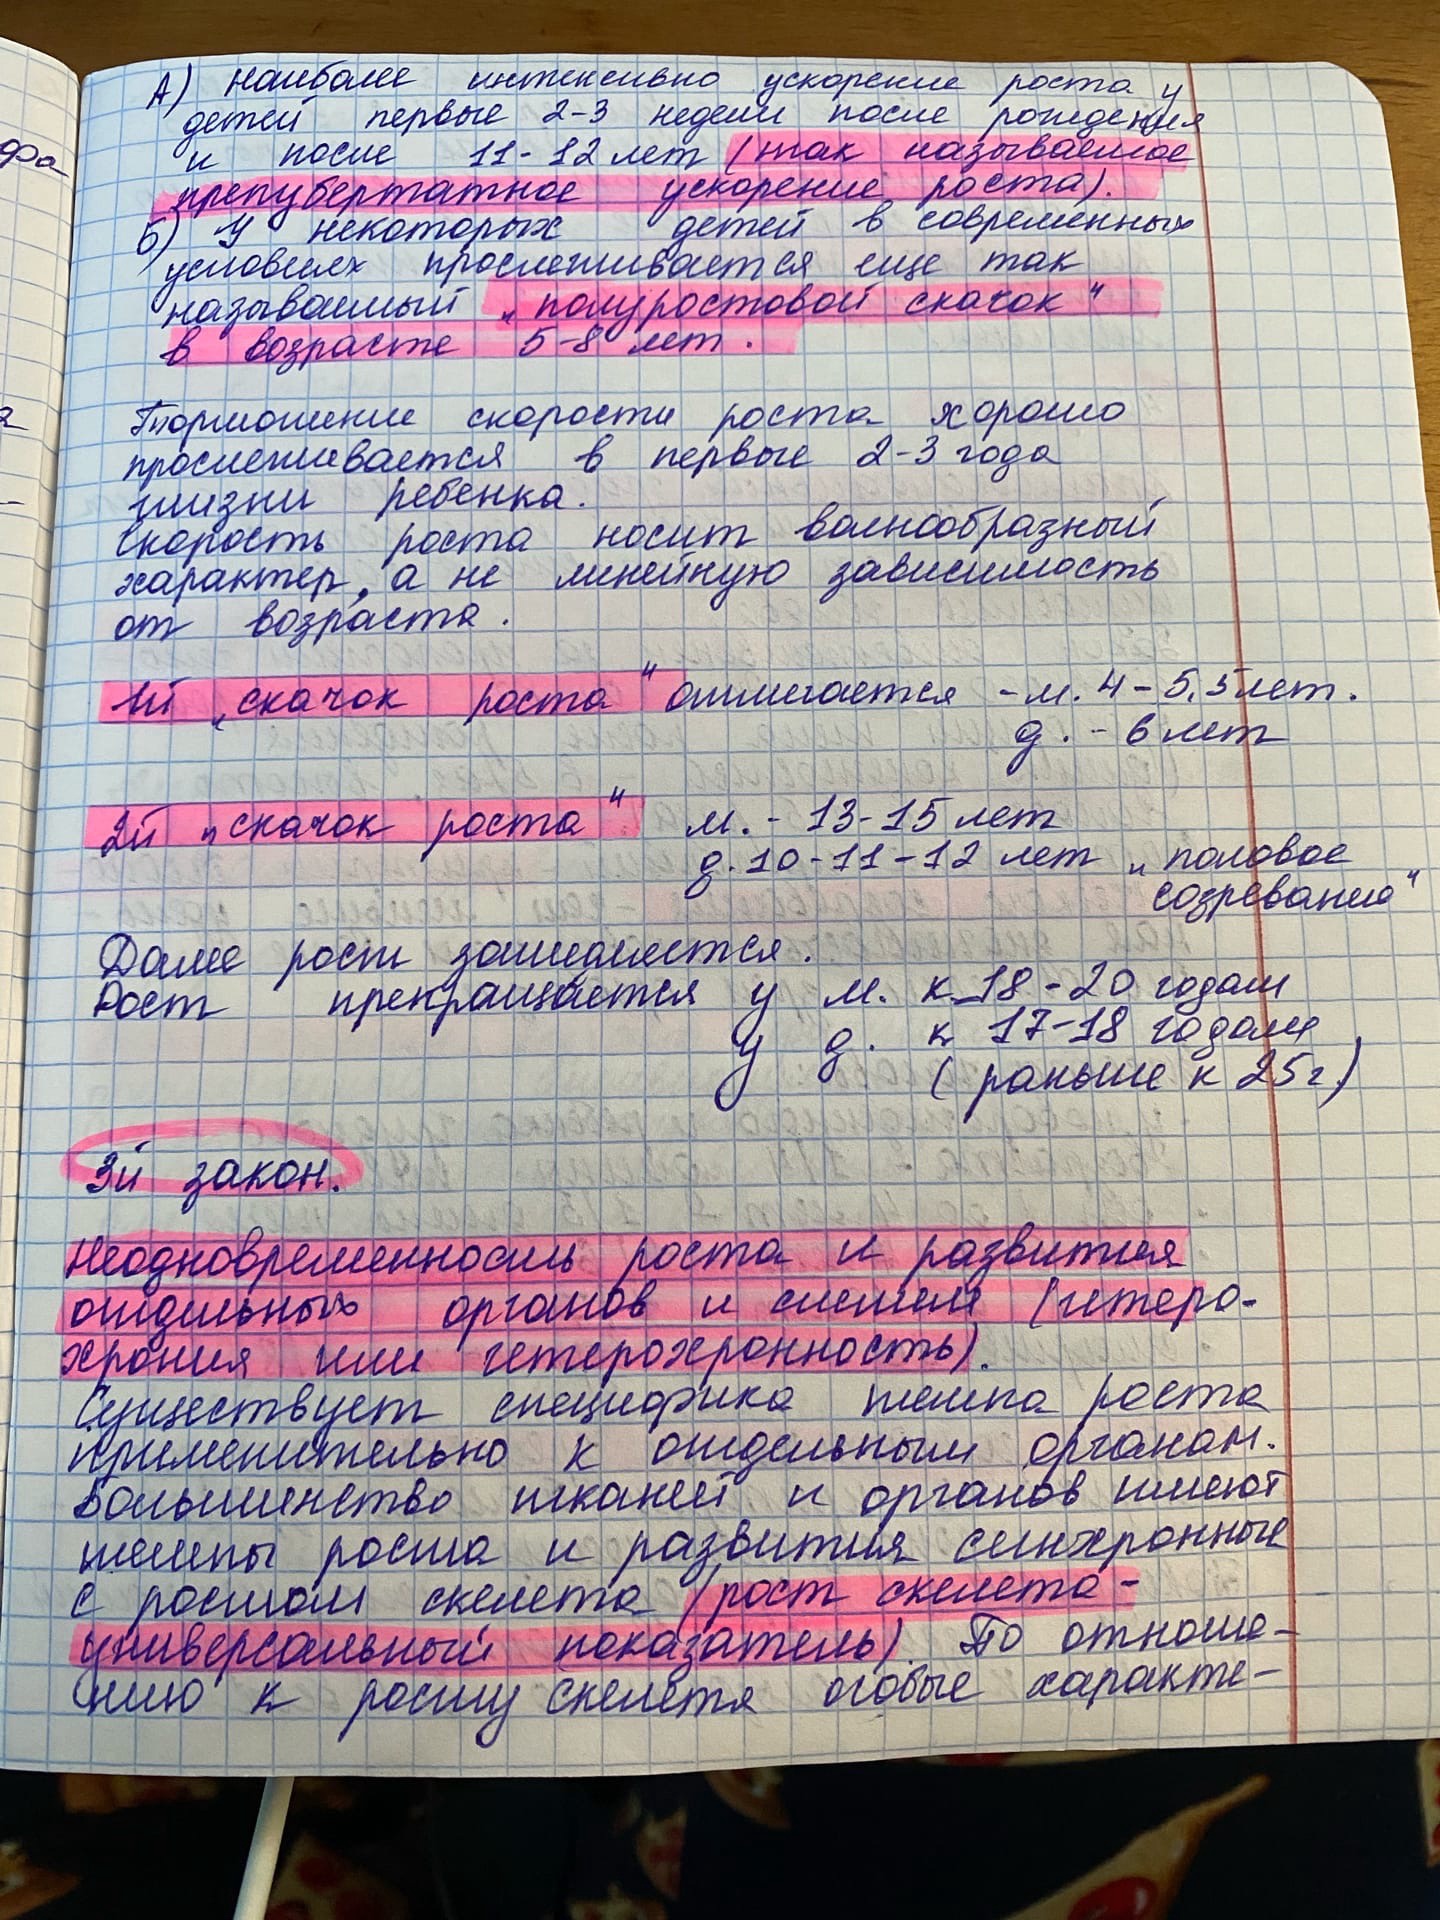 фа
А) Наиболее интенсивно ускорение роста у
детей первые 2-3 недели после рождения
и после 11-12 лет (так называемое
препубертатное ускорение роста).
Б) У некоторых детей в современных
условиях прослеживается еще так
называемый „полуростовой скачок"
в возрасте 5-8 лет.
Торможение скорости роста хорошо
прослеживается в первые 2-3 года
жизни ребенка.
Скорость роста носит волнообразный
характер, а не линейную зависимость
от возраста.
1й „скачок роста" отмечается - м. 4-5,5 лет.
д. - 6 лет
2й „скачок роста" м. - 13-15 лет
д. 10-11-12 лет „половое
созревание"
Далее рост замедляется.
Рост прекращается у м. к 18-20 годам
у д. к 17-18 годам
(раньше к 25г.)
3й закон.
Неодновременность роста и развития
отдельных органов и систем (гетеро-
хрония или гетерохронность).
Существует специфика темпа роста
применительно к отдельным органам.
Большинство тканей и органов имеют
темпы роста и развития синхронные
с ростом скелета (рост скелета -
универсальный показатель). По отноше-
нию к росту скелета особые характе-